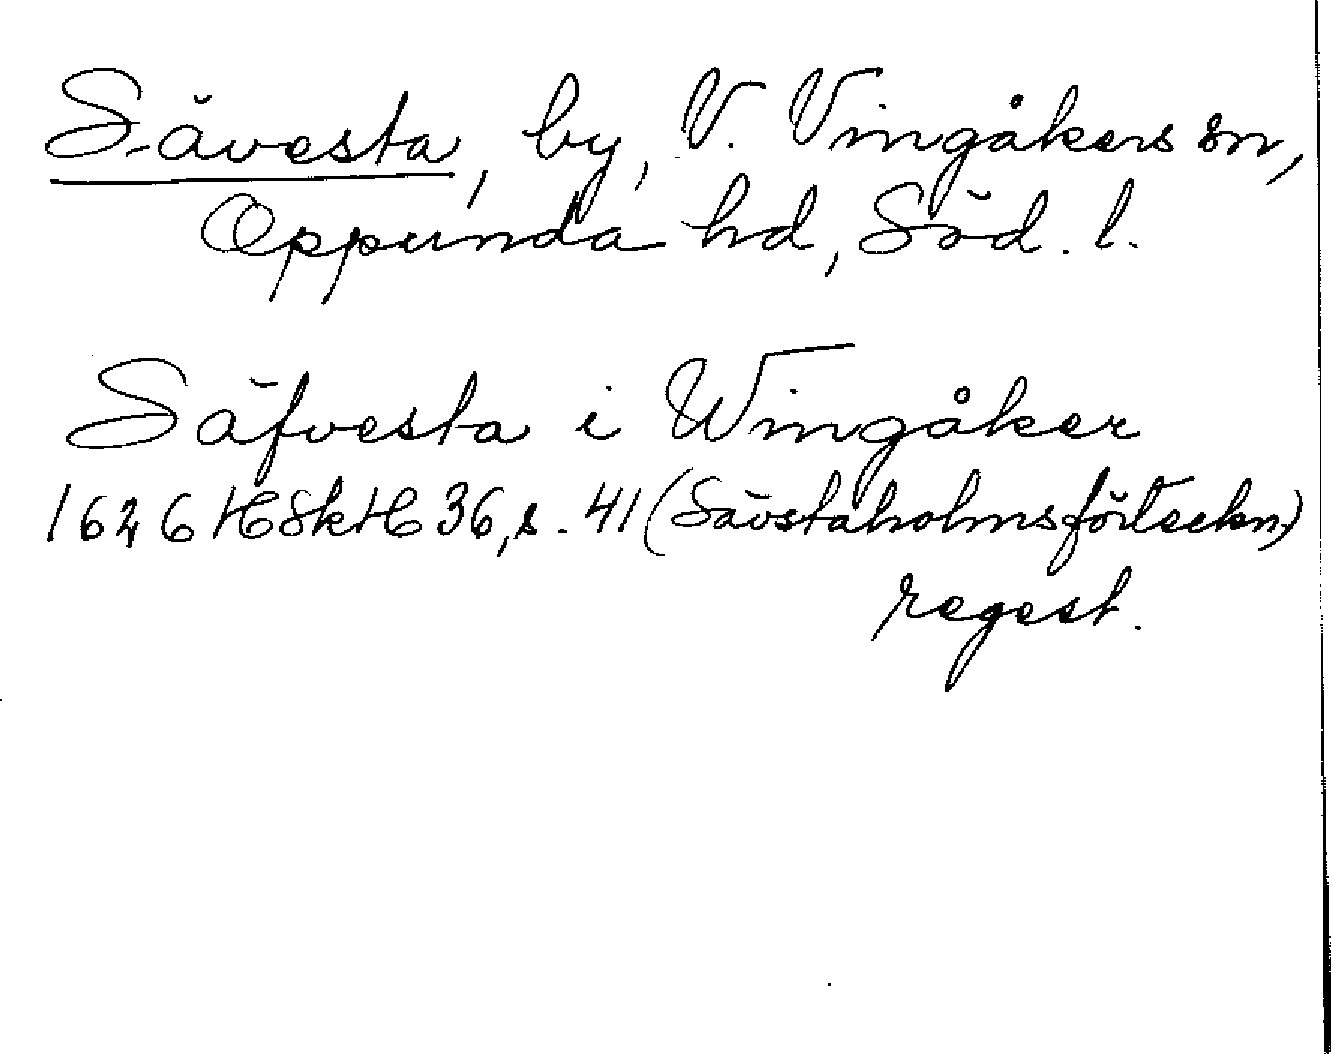 Sävesta, by, V. Vingåkers sn,
Oppunda hd, Söd. l.
Säfvesta i Wingåker
1626 HSkH 36, s. 41 (Sävstaholmsförteckn.)
regest.